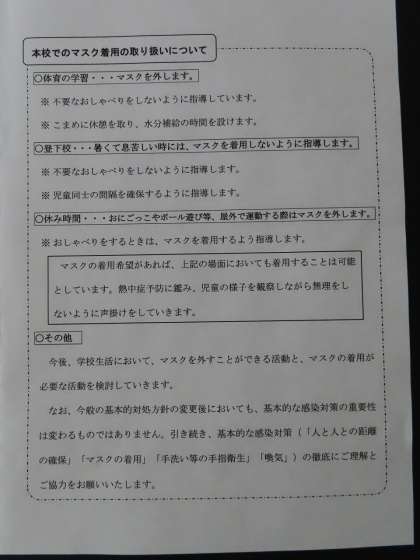 本校でのマスク着用の取り扱いについて
○体育の学習・・・マスクを外します。
※ 不要なおしゃべりをしないように指導しています。
※ こまめに休憩を取り、水分補給の時間を設けます。
○登下校・・・暑くて息苦しい時には、マスクを着用しないように指導します。
※ 不要なおしゃべりをしないように指導します。
※ 児童同士の間隔を確保するように指導します。
○休み時間・・・おにごっこやボール遊び等、屋外で運動する際はマスクを外します。
※ おしゃべりをするときは、マスクを着用するよう指導します。
マスクの着用希望があれば、上記の場面においても着用することは可能
としています。熱中症予防に鑑み、児童の様子を観察しながら無理をし
ないように声掛けをしていきます。
○その他
今後、学校生活において、マスクを外すことができる活動と、マスクの着用が
必要な活動を検討していきます。
なお、今般の基本的対処方針の変更後においても、基本的な感染対策の重要性
は変わるものではありません。引き続き、基本的な感染対策（「人と人との距離
の確保」「マスクの着用」「手洗い等の手指衛生」「換気」）の徹底にご理解と
ご協力をお願いいたします。